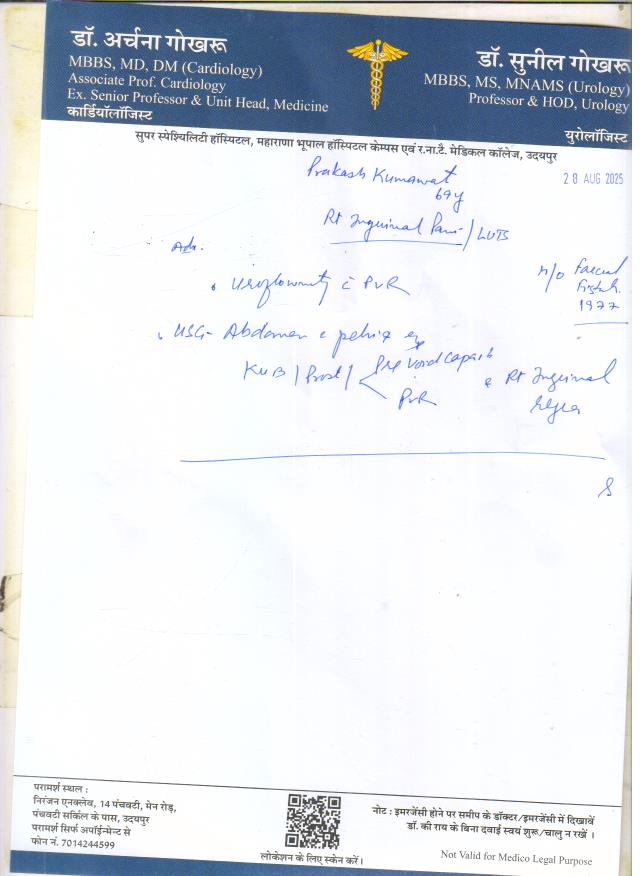 डॉ. अर्चना गोखरू
MBBS, MD, DM (Cardiology)
Associate Prof. Cardiology
Ex. Senior Professor & Unit Head, Medicine
कार्डियॉलॉजिस्ट
डॉ. सुनील गोखरू
MBBS, MS, MNAMS (Urology)
Professor & HOD, Urology
युरोलॉजिस्ट
सुपर स्पेश्यिलिटी हॉस्पिटल, महाराणा भूपाल हॉस्पिटल केम्पस एवं र.ना.टै. मेडिकल कॉलेज, उदयपुर
Prakash Kumawat
69y
28 AUG 2025
Rt Inguinal Pain / LUTS
Adv.
H/O Faecal
Fistula
1977
Uroflowmetry c̄ PVR
USG- Abdomen & pelvis
KUB / Prost / Pre Void Capacity
PVR
& Rt Inguinal
region
परामर्श स्थल :
निरंजन एनक्लेव, 14 पंचवटी, मेन रोड़,
पंचवटी सर्किल के पास, उदयपुर
परामर्श सिर्फ अपॉईन्मेन्ट से
फोन नं. 7014244599
लोकेशन के लिए स्केन करें।
नोट : इमरजेंसी होने पर समीप के डॉक्टर/इमरजेंसी में दिखावें
डॉ. की राय के बिना दवाई स्वयं शुरू/चालु न रखें ।
Not Valid for Medico Legal Purpose